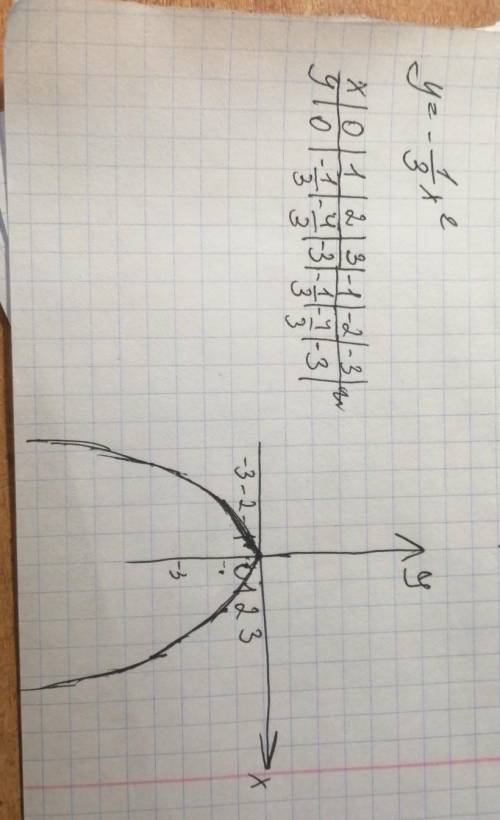 y = -1/3 x²
x | 0 | 1 | 2 | 3 | -1 | -2 | -3
y | 0 | -1/3 | -4/3 | -3 | -1/3 | -4/3 | -3
y
-3 -2 -1 0 1 2 3
x
-3